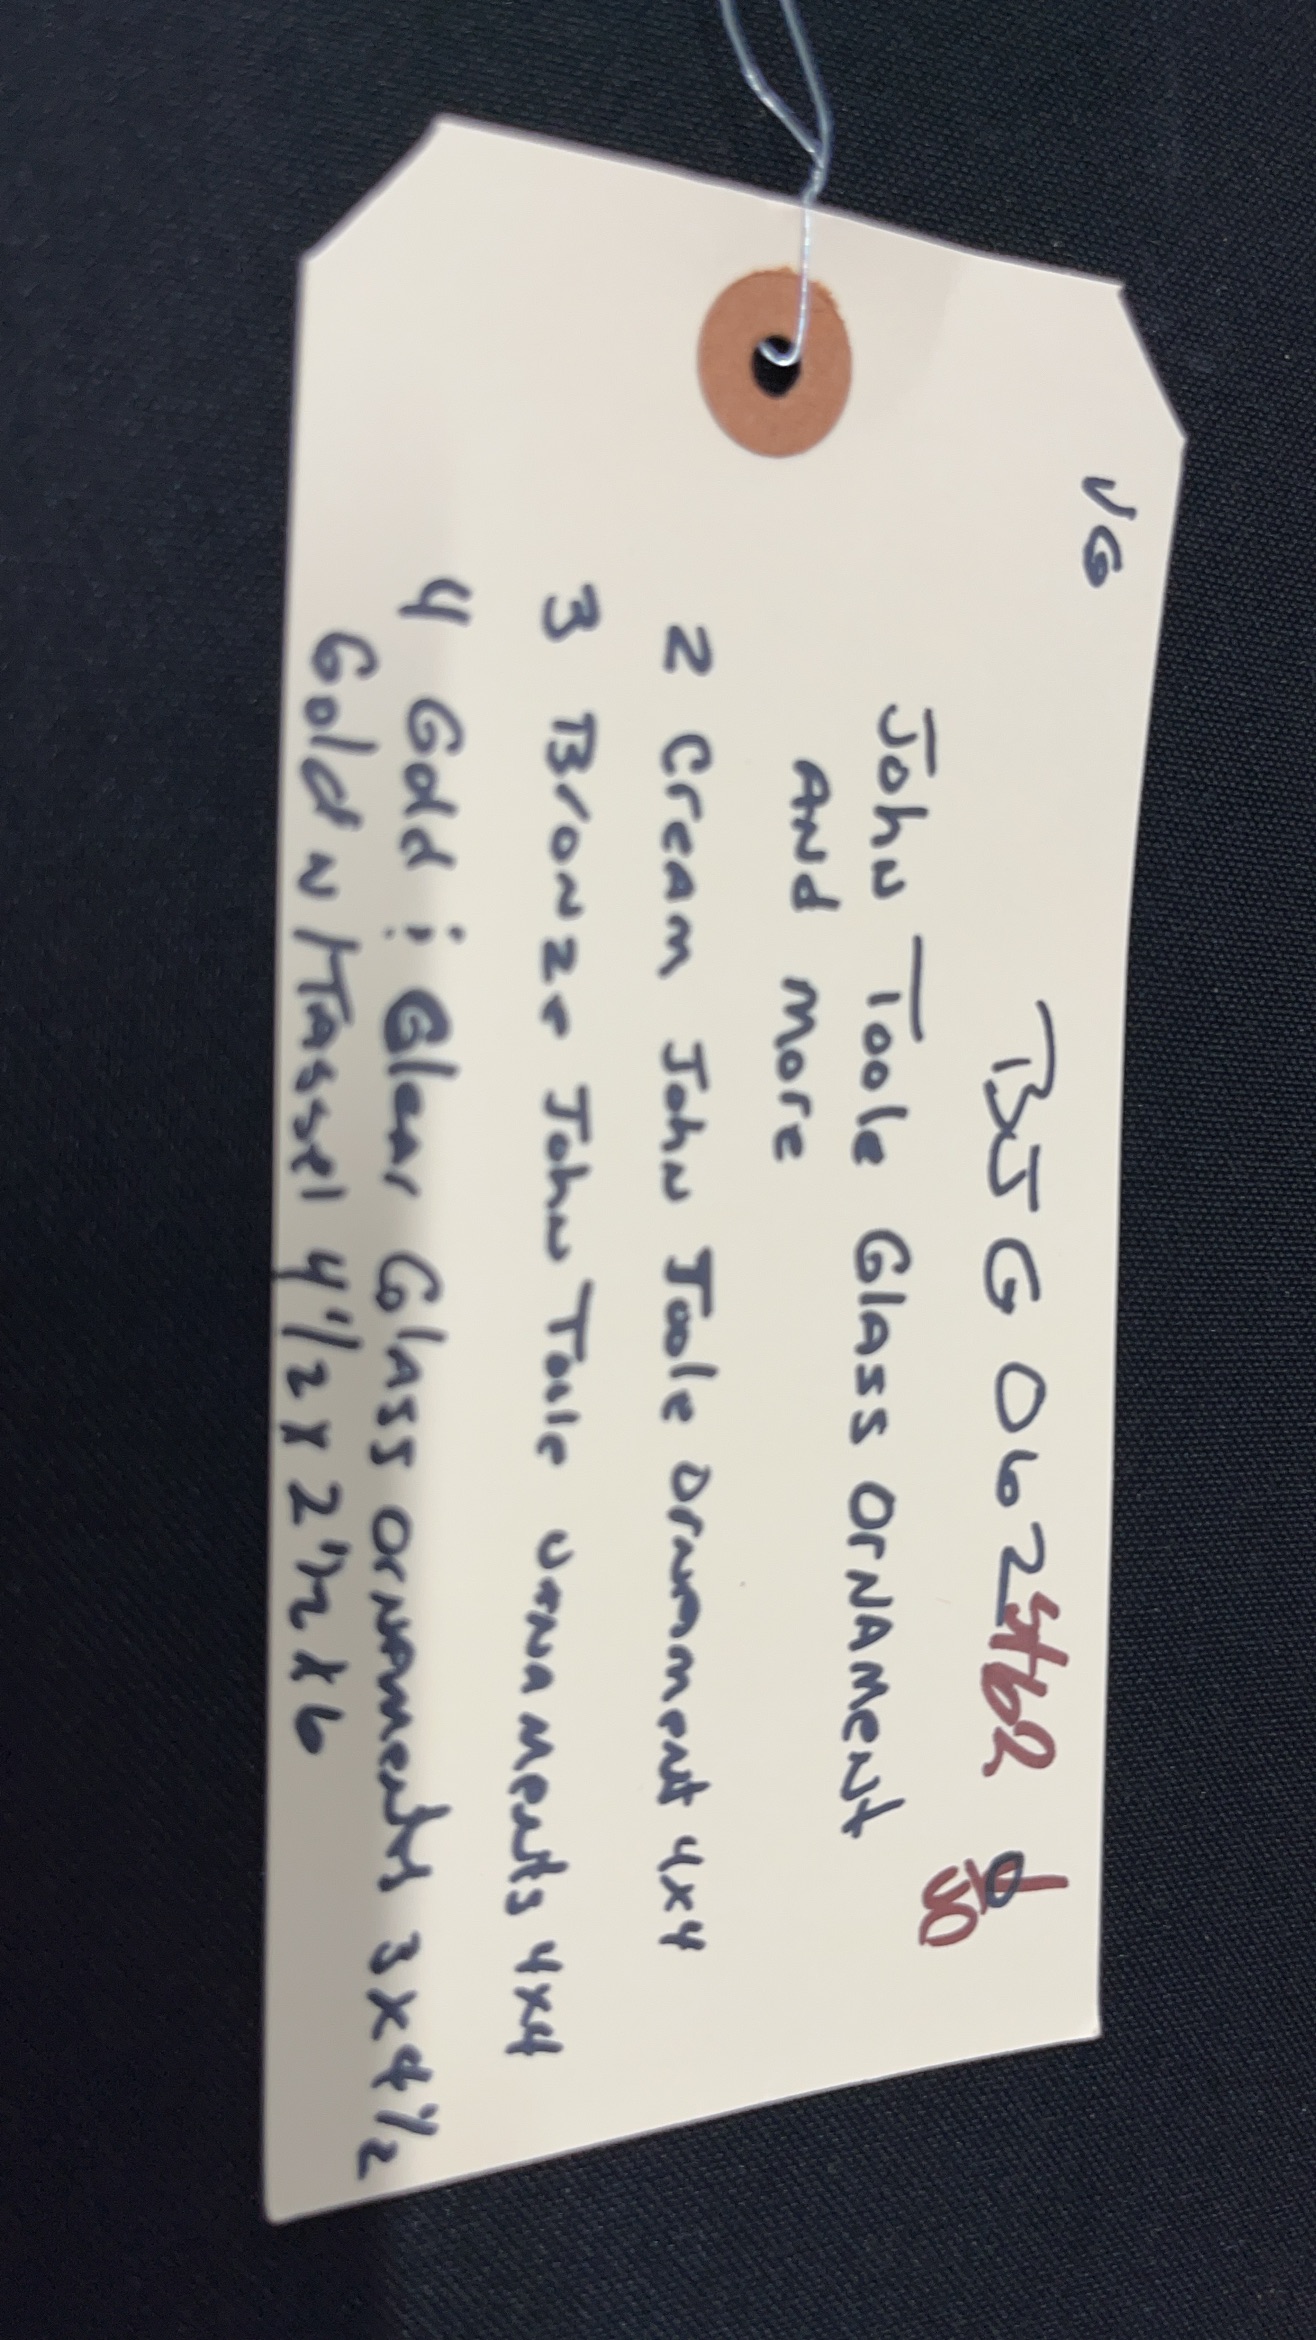 VG
BJG 062
John Toole Glass Ornament
And more
2 Cream John Toole Ornament 4x4
3 Bronze John Toole Ornaments 4x4
4 Gold : Clear Glass Ornaments 3x4 1/2
Gold N/Tassel 4 1/2 x 2 1/2 x 6